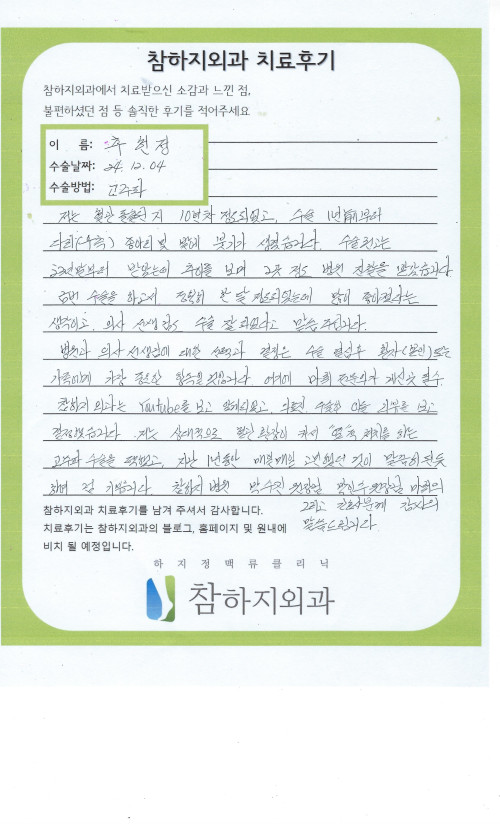 참하지외과 치료후기
참하지외과에서 치료받으신 소감과 느낀 점,
불편하셨던 점 등 솔직한 후기를 적어주세요
이 름: 추 정
수술날짜: 24. 12. 04
수술방법: 고주파
저는 혈관 돌출된 지 10년차 정도되었고, 수술 1년 부터
다리( ) 종아리 및 발에 붓기가 생겼습니다. 수술권고는
받았는데 추이를 보며 2곳 정도 병원 진찰을 받았습니다
수술을 하고서 정확히 한 달 정도되었는데 많이 좋아졌다는
생각이고, 의사 선생님도 수술 잘 되었다고 말씀 주십니다.
병원과 의사 선생님에 대한 선택과 결정은 수술 환자(본인) 또는
가족에게 가장 중요한 여기에 마취 전문의가 계신것 필수.
참하지 외과는 Youtube를 보고 알게되었고, 수술후 리뷰를 보고
결정했습니다. 저는 상대적으로 혈관 확장이 커서 처치를 하는
고주파 수술을 택했고, 지난 1년동안 매일매일 고민했던 것이 말끔히
기쁩니다 참하지 병원 박수진 원장님 원장님 마취의
그리고 간호사분께 감사의
말씀드립니다.
참하지외과 치료후기를 남겨 주셔서 감사합니다.
치료후기는 참하지외과의 블로그, 홈페이지 및 원내에
비치 될 예정입니다.
하 지 정 맥 류 클 리 닉
참하지외과